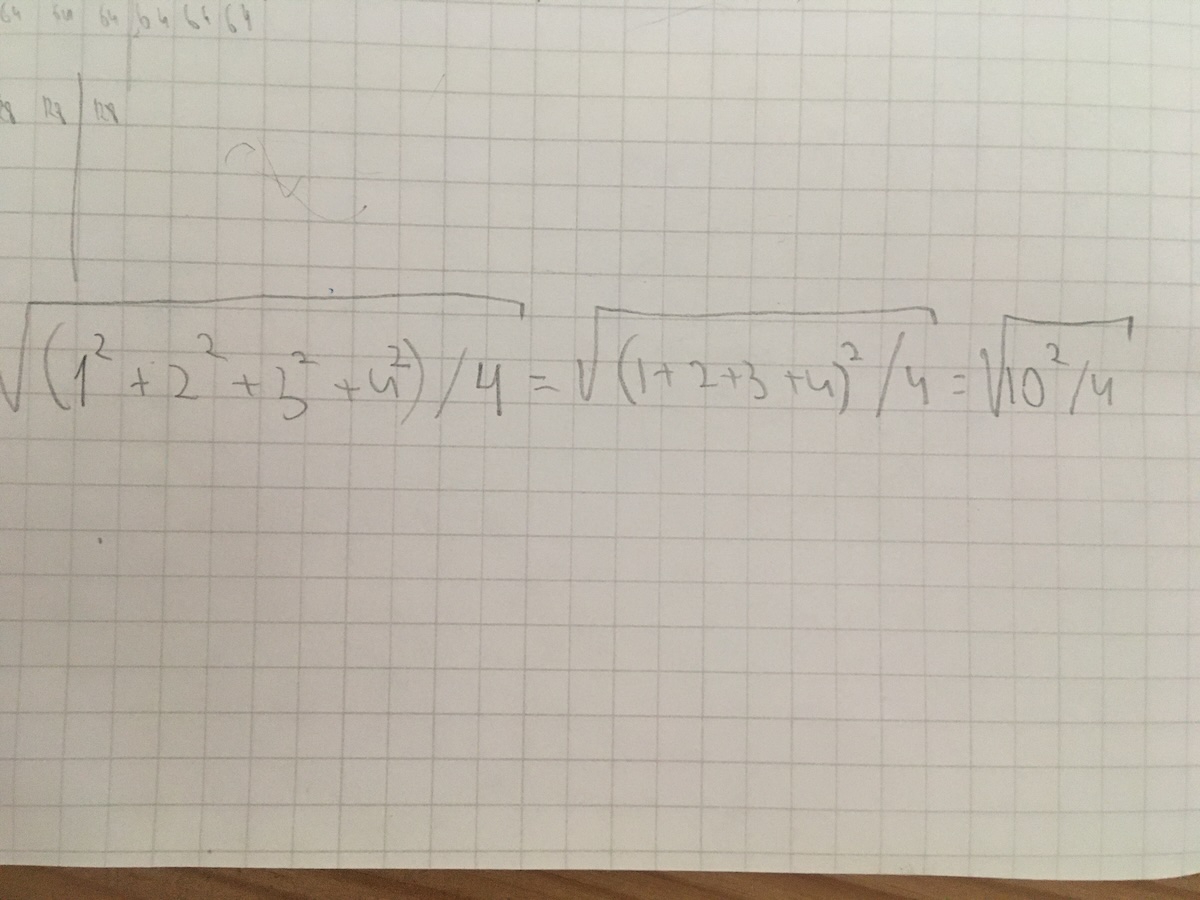 64 64 64 64 64 64
28 128 128
√(1² + 2² + 3² + 4²) / 4 = √(1 + 2 + 3 + 4)² / 4 = √10² / 4